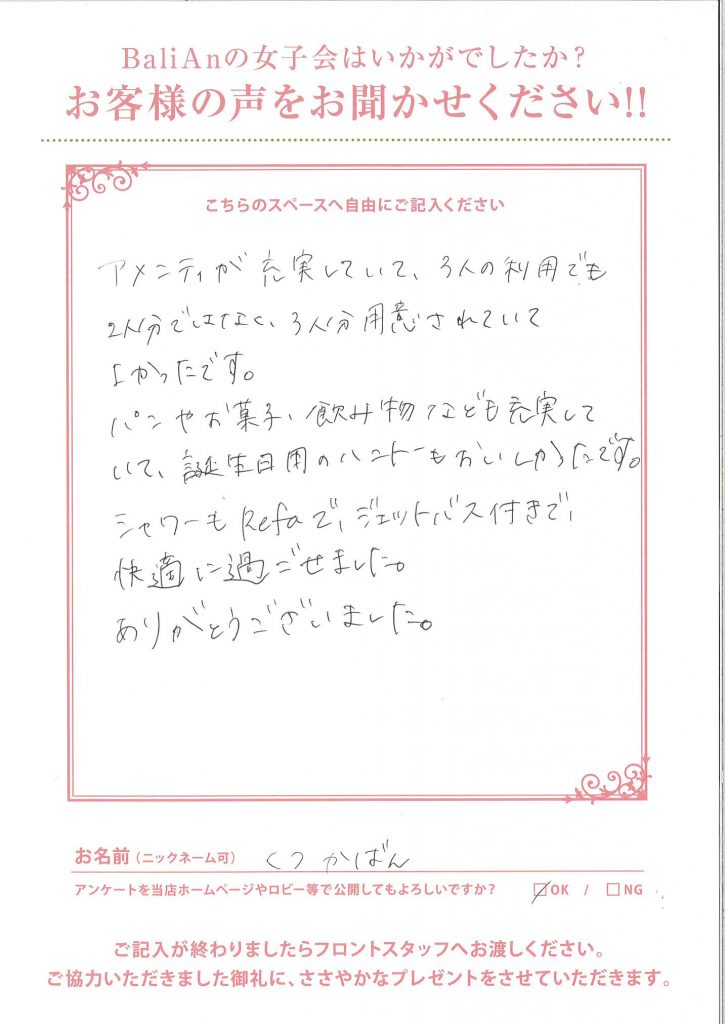 BaliAnの女子会はいかがでしたか?
お客様の声をお聞かせください!!
こちらのスペースへ自由にご記入ください
アメニティが充実していて、3人の利用でも
2人分ではなく、3人分用意されていて
よかったです。
パンやお菓子、飲み物なども充実して
いて、誕生日用のハニトーもおいしかったです。
シャワーもRefaで、ジェットバス付きで、
快適に過ごせました。
ありがとうございました。
お名前(ニックネーム可) くつかばん
アンケートを当店ホームページやロビー等で公開してもよろしいですか? ☑OK / □NG
ご記入が終わりましたらフロントスタッフへお渡しください。
ご協力いただきました御礼に、ささやかなプレゼントをさせていただきます。